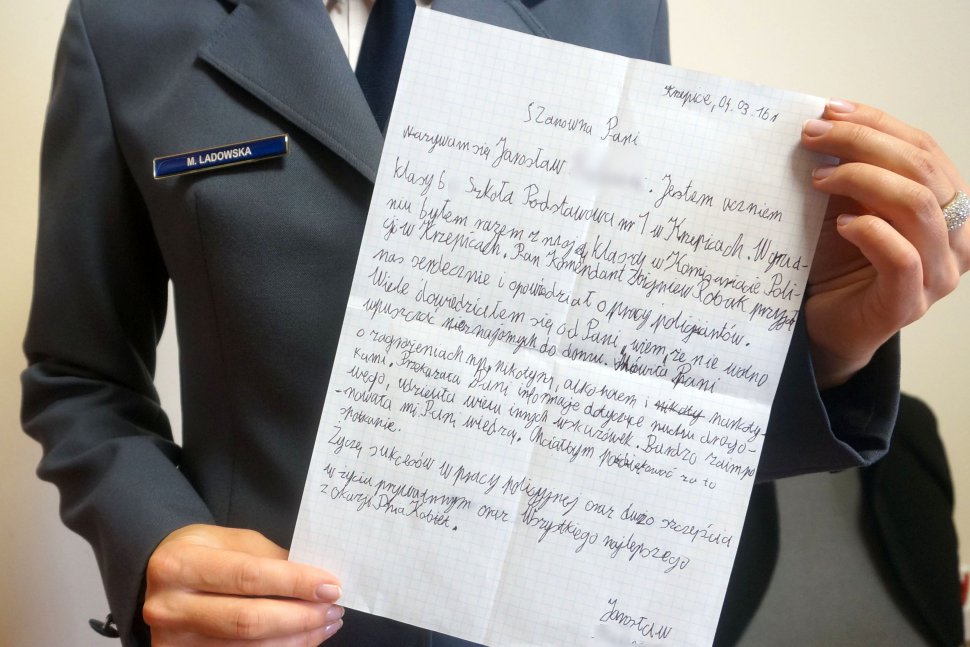 M. LADOWSKA
Krzepice, 04.03.16r
Szanowna Pani
Nazywam się Jarosław . Jestem uczniem
klasy 6 . Szkoła Podstawowa nr 1 w Krzepicach. W grud-
niu byłem razem z moją klasą w Komisariacie Poli-
cji w Krzepicach. Pan Komendant Zbigniew Sobak przyjął
nas serdecznie i opowiedział o pracy policjantów.
Wiele dowiedziałem się od Pani, wiem, że nie wolno
wpuszczać nieznajomych do domu. Mówiła Pani
o zagrożeniach np. nikotyną, alkoholem i narkoty-
kami. Przekazała Pani informacje dotyczące ruchu drogo-
wego, udzieliła wielu innych wskazówek. Bardzo zaimpo
-nowała mi Pani wiedzą. Chciałbym podziękować za to
spotkanie.
Życzę sukcesów w pracy policyjnej oraz dużo szczęścia
w życiu prywatnym oraz Wszystkiego najlepszego
z okazji Dnia Kobiet.
Jarosław